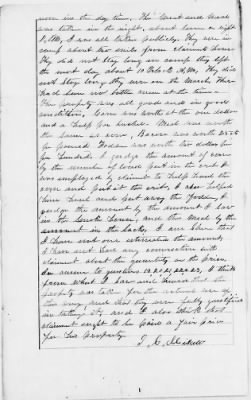 were in the day time. The Meat and Meal
was taken in the night, about seven or eight
P.M. I was all taken publicly. They were in
camp about two miles from claimants home
They did not stay long in camp they left
the next day about 10 Oclock A.M. They did
not stay long, they were on the march, there
had been no battle near at the time.
The property was all good and in good
condition, Corn was worth at the
and a half per bushel. Meat was worth
the same as now, Bacon was worth
per pound. Fodder was worth two dollars
per hundred. I judge the amount of corn
by the number of loads put in the crib. I
was employed by claimant to help haul the
corn and put it in the crib. I also helped
him haul and put away the Fodder. I
judge the amount by the amount I saw
in the and the Meal by the
amount in the sacks. I am when that
I have not one interested the amount,
I have not had any connection with
claimant about the quantity or the price.
In answer to question I think
from what I saw and know that the
property was taken for the actual use of
the army, and that they were fully justified
in taking it, and I also think that
claimant ought to be paid a fair price
for his property